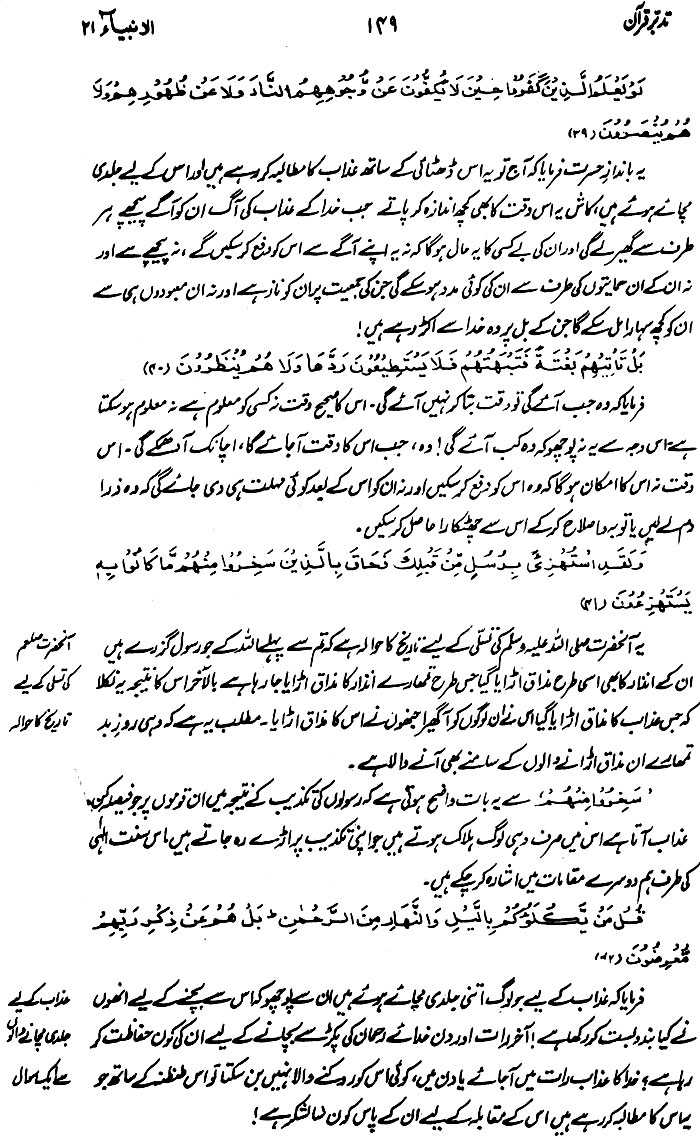 تدبر قرآن ۱۴۹ الانبیاء ۲۱
لَوْ يَعْلَمُ الَّذِيْنَ كَفَرُوْا حِيْنَ لَا يَكُفُّوْنَ عَنْ وُّجُوْهِهِمُ النَّارَ وَلَا عَنْ ظُهُوْرِهِمْ وَلَا
هُمْ يُنْصَرُوْنَ (۳۹)
یہ باندازِ حسرت فرمایا کہ آج تو یہ اس ڈھٹائی کے ساتھ عذاب کا مطالبہ کر رہے ہیں اور اس کے لیے جلدی
مچائے ہوئے ہیں، کاش یہ اس وقت کا بھی کچھ اندازہ کر پاتے جب خدا کے عذاب کی آگ ان کو آگے پیچھے ہر
طرف سے گھیرے گی اور ان کی بے کسی کا یہ حال ہو گا کہ نہ یہ اپنے آگے سے اس کو دفع کر سکیں گے، نہ پیچھے سے اور
نہ ان کے ان حمایتیوں کی طرف سے ان کی کوئی مدد ہو سکے گی جن کی جمعیت پر ان کو ناز ہے اور نہ ان معبودوں ہی سے
ان کو کچھ سہارا مل سکے گا جن کے بل پر وہ خدا سے اکڑ رہے ہیں!
بَلْ تَاْتِيْهِمْ بَغْتَةً فَتَبْهَتُهُمْ فَلَا يَسْتَطِيْعُوْنَ رَدَّهَا وَلَا هُمْ يُنْظَرُوْنَ (۴۰)
فرمایا کہ وہ جب آئے گی تو وقت بتا کر نہیں آئے گی۔ اس کا صحیح وقت نہ کسی کو معلوم ہے نہ معلوم ہو سکتا
ہے اس وجہ سے یہ نہ پوچھو کہ وہ کب آئے گی! وہ، جب اس کا وقت آ جائے گا، اچانک آ دھمکے گی۔ اس
وقت نہ اس کا امکان ہو گا کہ وہ اس کو دفع کر سکیں اور نہ ان کو اس کے بعد کوئی مہلت ہی دی جائے گی کہ وہ ذرا
دم لے لیں یا توبہ و اصلاح کر کے اس سے چھٹکارا حاصل کر سکیں۔
وَلَقَدِ اسْتُهْزِئَ بِرُسُلٍ مِّنْ قَبْلِكَ فَحَاقَ بِالَّذِيْنَ سَخِرُوْا مِنْهُمْ مَّا كَانُوْا بِهٖ
يَسْتَهْزِءُوْنَ (۴۱)
یہ آنحضرت صلی اللہ علیہ وسلم کی تسلی کے لیے تاریخ کا حوالہ ہے کہ تم سے پہلے اللہ کے جو رسول گزرے ہیں
ان کے انذار کا بھی اسی طرح مذاق اڑایا گیا جس طرح تمھارے انذار کا مذاق اڑایا جا رہا ہے بالآخر اس کا نتیجہ یہ نکلا
کہ جس عذاب کا مذاق اڑایا گیا اسی نے ان لوگوں کو آ گھیرا جنھوں نے اس کا مذاق اڑایا۔ مطلب یہ ہے کہ وہی روزِ بد
تمھارے ان مذاق اڑانے والوں کے سامنے بھی آنے والا ہے۔
آنحضرت صلعم
کی تسلی کے لیے
تاریخ کا حوالہ
’سَخِرُوْا مِنْهُمْ‘ سے یہ بات واضح ہوتی ہے کہ رسولوں کی تکذیب کے نتیجہ میں ان قوموں پر جو فیصلہ کن
عذاب آتا ہے اس میں صرف وہی لوگ ہلاک ہوتے ہیں جو اپنی تکذیب پر اڑے رہ جاتے ہیں اس سنت الٰہی
کی طرف ہم دوسرے مقامات میں اشارہ کر چکے ہیں۔
قُلْ مَنْ يَّكْلَؤُكُمْ بِالَّيْلِ وَالنَّهَارِ مِنَ الرَّحْمٰنِ ؕ بَلْ هُمْ عَنْ ذِكْرِ رَبِّهِمْ
مُّعْرِضُوْنَ (۴۲)
فرمایا کہ عذاب کے لیے جو لوگ اتنی جلدی مچائے ہوئے ہیں ان سے پوچھو کہ اس سے بچنے کے لیے انھوں
نے کیا بندوبست کر رکھا ہے! آخر رات اور دن خدائے رحمان کی پکڑ سے بچانے کے لیے ان کی کون حفاظت کر
رہا ہے؟ خدا کا عذاب رات میں آ جائے یا دن میں، کوئی اس کو روکنے والا نہیں بن سکتا تو اس طنطنہ کے ساتھ جو
یہ اس کا مطالبہ کر رہے ہیں اس کے مقابلہ کے لیے ان کے پاس کون سا لشکر ہے!
عذاب کے لیے
جلدی مچانے والوں
سے ایک سوال